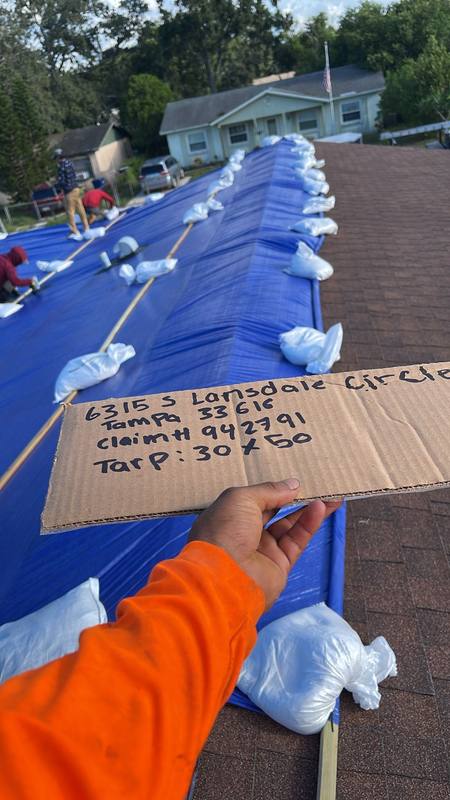 6315 S Lansdale Circle
Tampa 33616
Claim# 942791
Tarp: 30 x 50